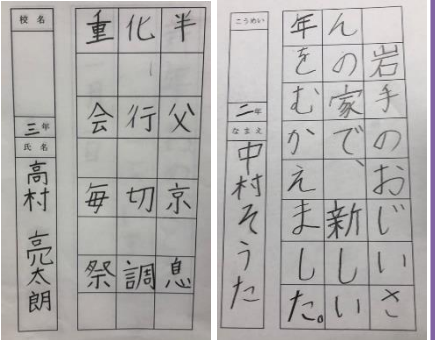 半父京息
化行切調
重会毎祭
校名
三年
氏名
高村 亮太朗
岩手のおじいさ
んの家で、新しい
年をむかえました。
こうめい
二年
なまえ
中村そうた